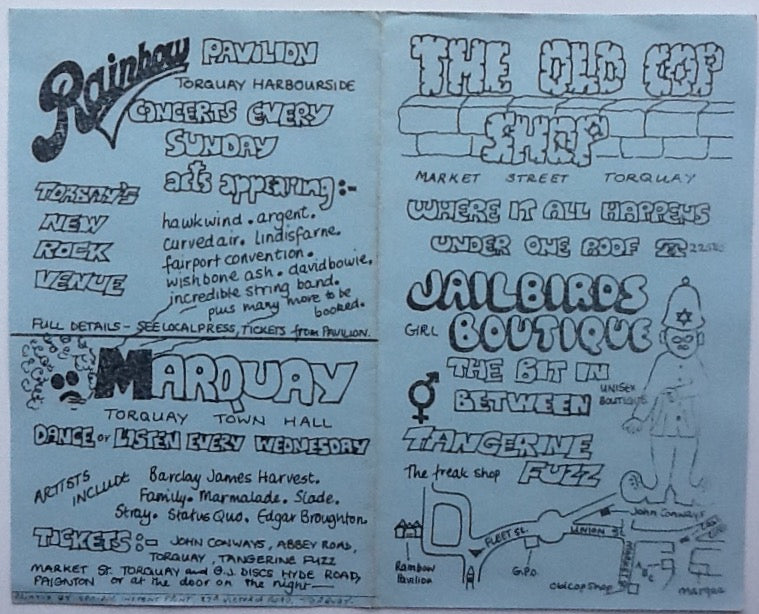 Rainbow PAVILION
TORQUAY HARBOURSIDE
CONCERTS EVERY
SUNDAY
TORBAY'S
NEW
ROCK
VENUE
acts appearing:-
hawkwind. argent.
curved air. lindisfarne.
fairport convention.
wishbone ash. david bowie.
incredible string band.
plus many more to be
booked.
FULL DETAILS - SEE LOCAL PRESS, TICKETS from PAVILION.
MARQUAY
TORQUAY TOWN HALL
DANCE or LISTEN EVERY WEDNESDAY
ARTISTS
INCLUDE
Barclay James Harvest.
Family. Marmalade. Slade.
Stray. Status Quo. Edgar Broughton
TICKETS:- JOHN CONWAYS, ABBEY ROAD,
TORQUAY, TANGERINE FUZZ
MARKET ST. TORQUAY and G.J. DISCS HYDE ROAD,
PAIGNTON or at the door on the night
THE OLD COP
SHOP
MARKET STREET TORQUAY
WHERE IT ALL HAPPENS
UNDER ONE ROOF
JAILBIRDS
GIRL BOUTIQUE
THE BIT IN
BETWEEN
UNISEX
BOUTIQUE
TANGERINE
The freak shop FUZZ
John Conways
FLEET ST.
UNION ST.
Rainbow
Pavilion
G.P.O.
Old Cop Shop
MARKET
A.B.C
Marquay